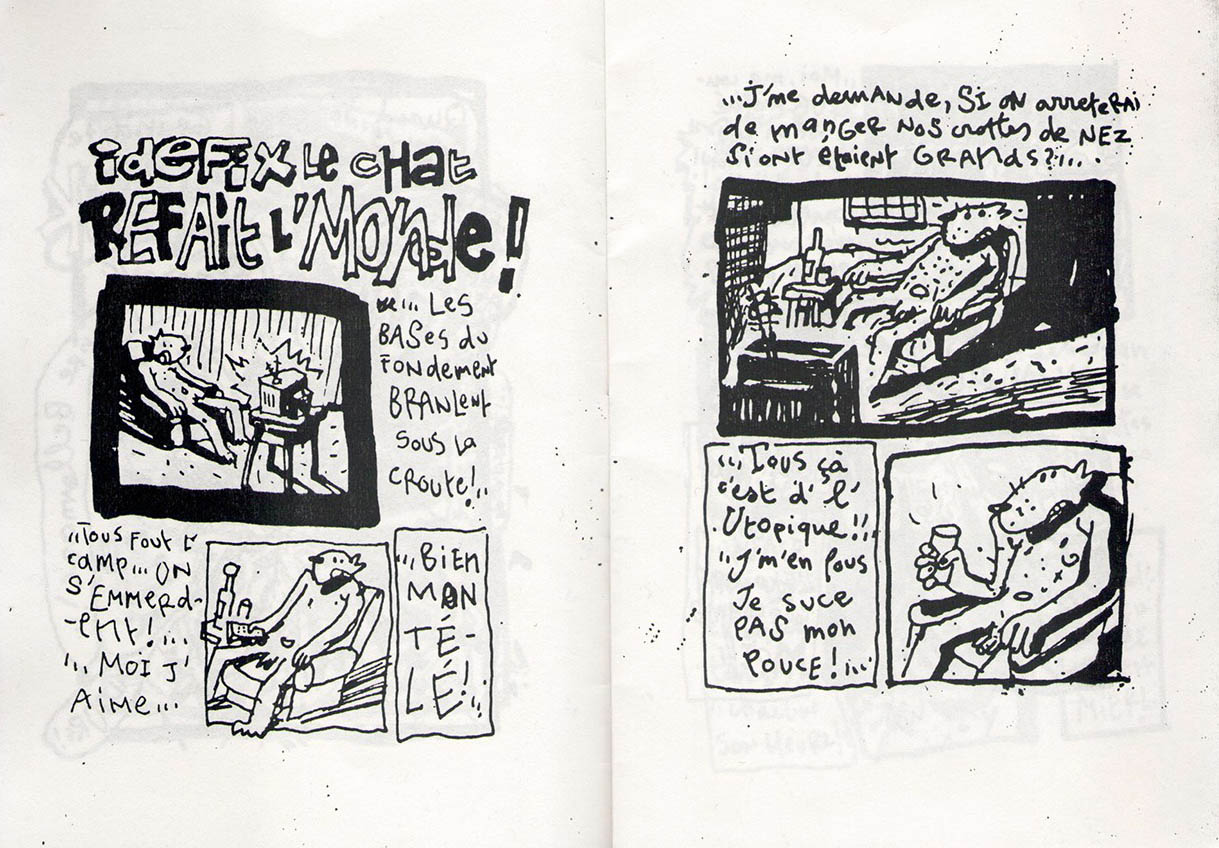 idefix le chat
REFAit l'MONde!
... Les
BASes du
Fondement
BRANLent
sous la
croute!..
"Tous Fout l'
camp... ON
s'Emmerd-
-ent!...
... Moi j'
Aime...
...Bien
MON
TÉ-
LÉ!..
...J'me demANde, Si oN arreteRAi
de maNGER Nos crottes de NEZ
Si ont étaient GRANds?!...
...Tous çà
c'est d' l'
Utopique!!..
"J'm'en fous
Je suce
PAS mon
POUCE!...